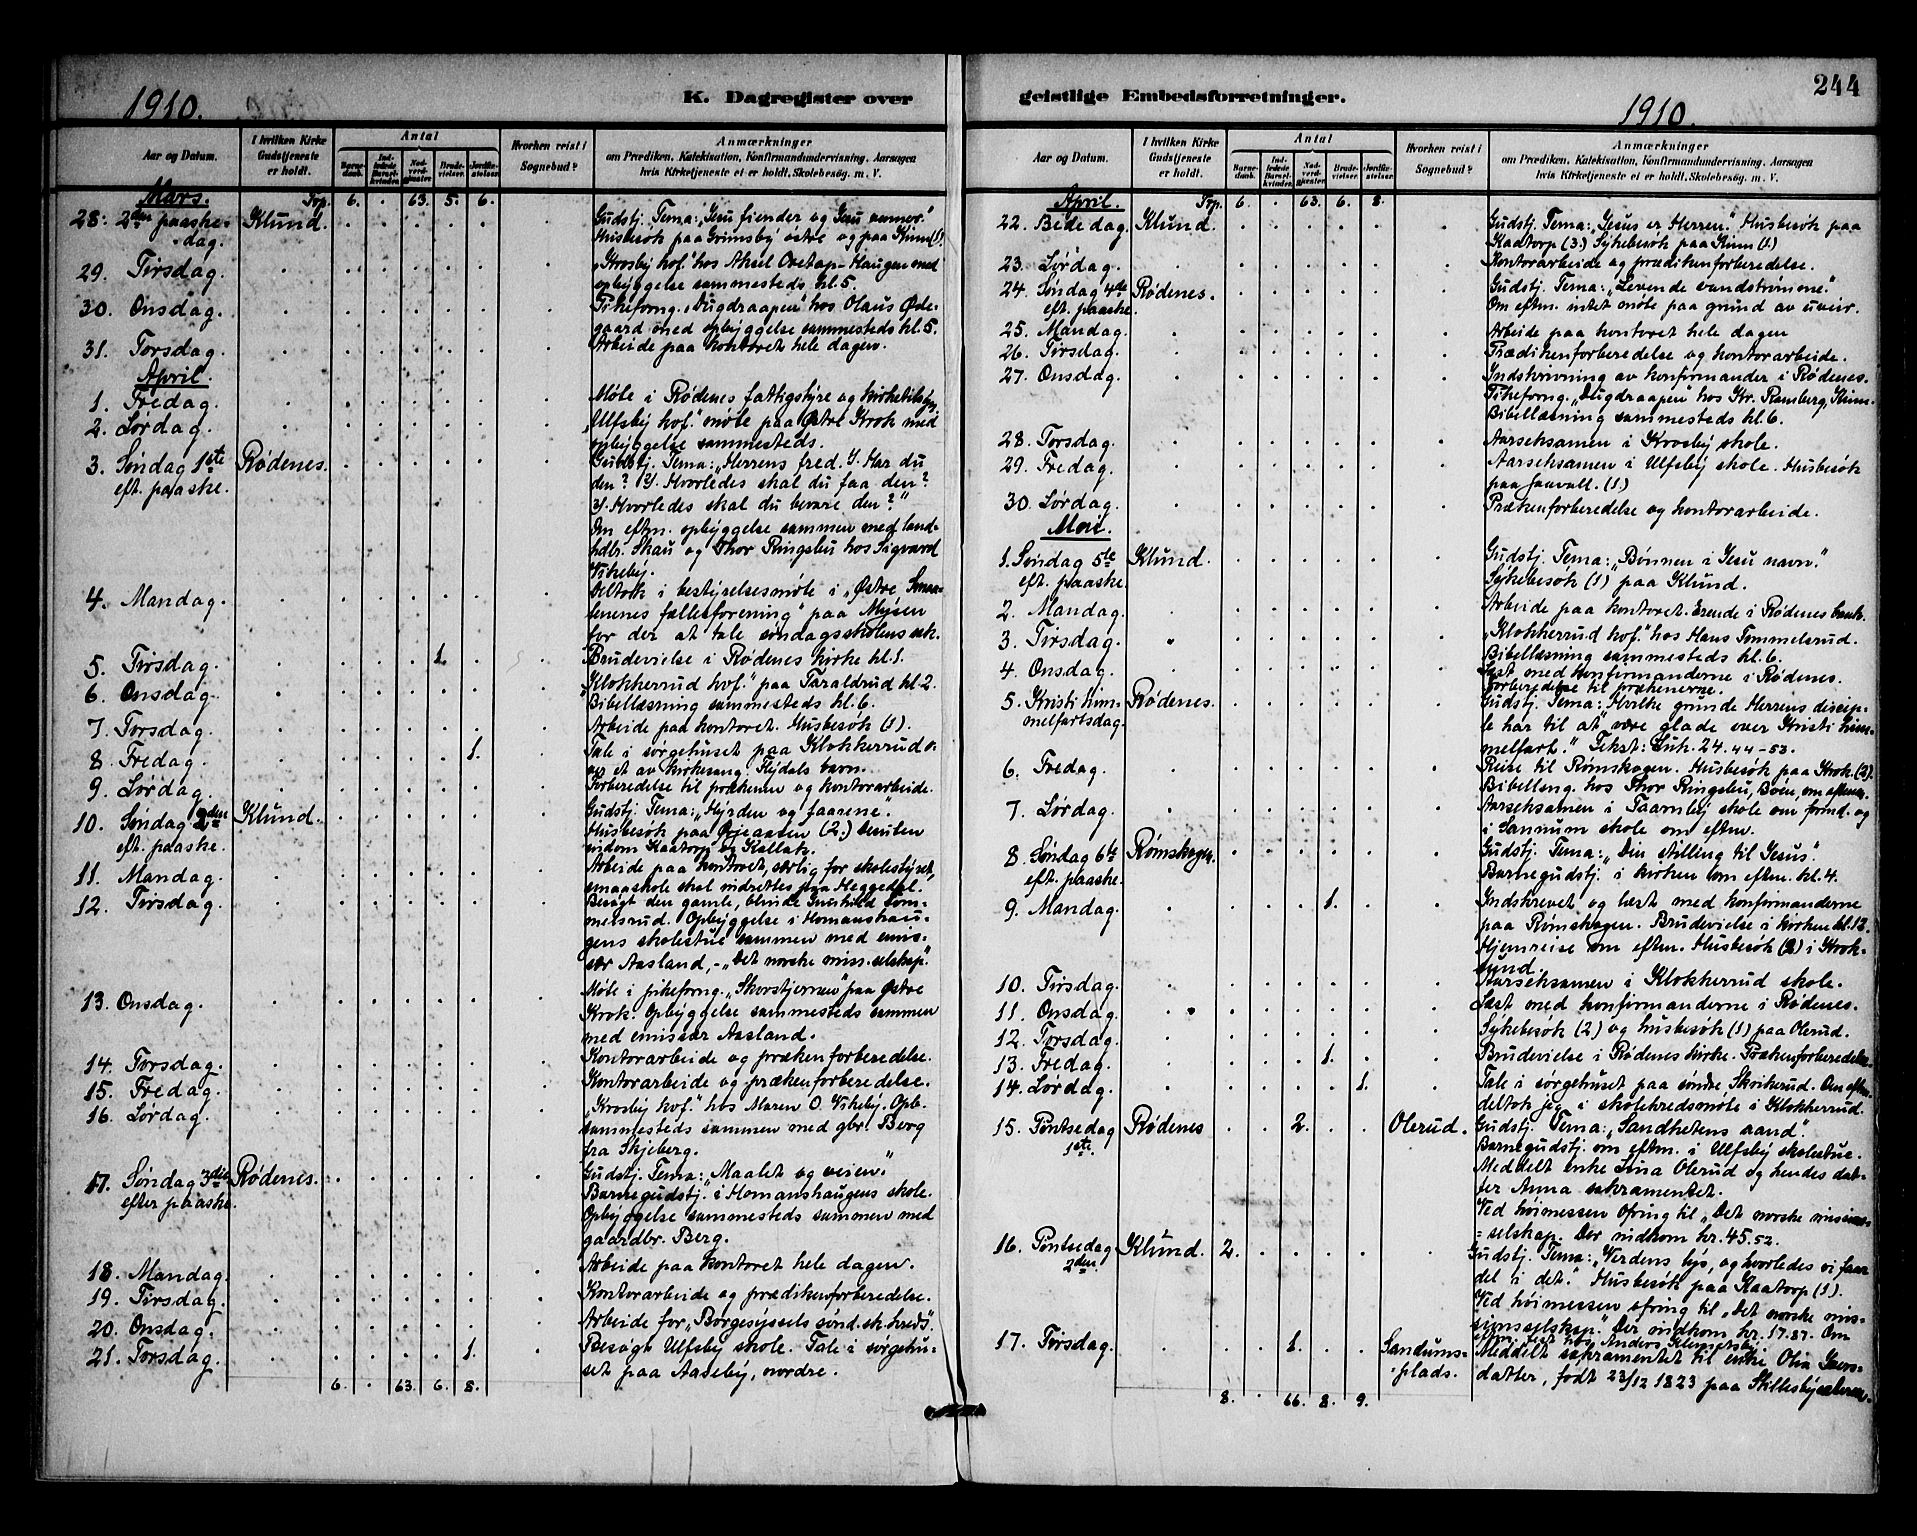 1910.
K. Dagregister over
Aar og Datum.
I hvilken Kirke Gudstjeneste er holdt.
Antal
Barne-daab.
Ind-ledede Barsel-kvinder.
Nad-verd-gjæster.
Brude-vielser.
Jordfæ-stelser.
Hvorhen reist i Sognebud?
Anmærkninger
om Prædiken, Katekisation, Konfirmandundervisning, Aarsagen
hvis Kirketjeneste ei er holdt, Skolebesøg m. V.
Mars. Trp. 6. . 63. 5. 6.
28. 2den paaske-dag. Klund. Gudstj. Tema: "Jesu fiender og Jesu venner."
Husbesøk paa Grimsby østre og paa Kinn (1).
29. Tirsdag. "Krosby kof." hos Aksel Haugen med
opbyggelse sammesteds kl. 5.
30. Onsdag. Pikeforng. "Dugdraapen" hos Olaus Øde-
gaard med opbyggelse sammesteds kl. 5.
31. Torsdag. Arbeide paa kontoret hele dagen.
April.
1. Fredag. Møte i Rødenes fattigstyre og kirketilsyn.
2. Lørdag. "Ulfsby kof." møte paa Østre Krok med
opbyggelse sammesteds.
3. Søndag 1ste eft. paaske. Rødenes. Gudstj. Tema: "Herrens fred. 1. Har du
den? 2. Hvorledes skal du faa den?
3. Hvorledes skal du bevare den?"
Om eftm. opbyggelse sammen med land-
hdlr. Skau og Thor Ringsbu hos Sigvard
Vikeby.
4. Mandag. Deltok i bestyrelsesmøte i "Østre Smaa-
lenenes fællesforening" paa Mysen
for der at tale søndagsskolens sak.
5. Tirsdag. 1. Brudevielse i Rødenes kirke kl. 1.
6. Onsdag. "Klokkerrud kof." paa Taraldrud kl. 2.
Bibellæsning sammesteds kl. 6.
7. Torsdag. Arbeide paa kontoret. Husbesøk (1).
8. Fredag. 1. Tale i sørgehuset paa Klokkerrud
et av kirkesang. Flydals barn.
9. Lørdag. Forberedelse til prækenen og kontorarbeide.
10. Søndag 2den eft. paaske. Klund. Gudstj. Tema: "Hyrden og faarene."
Husbesøk paa Ørjeaasen (2.) foruten
indom Kaatorp og Kallak.
11. Mandag. Arbeide paa kontoret, særlig for skolestyret,
smaaskole skal indrettes paa Heggedal.
12. Tirsdag. Besøgt den gamle, blinde Gunhild Tom-
melsrud. Opbyggelse i Homanshau-
gens skolestue sammen med emis-
sær Aasland, - "Det norske miss. selskap".
13. Onsdag. Møte i pikeforng. "Morstjernen" paa Østre
Krok. Opbyggelse sammesteds sammen
med emissær Aasland.
14. Torsdag. Kontorarbeide og prækenforberedelse.
15. Fredag. Kontorarbeide og prækenforberedelse.
16. Lørdag. "Krosby kof." hos Maren O. Vikeby. Opb.
sammesteds sammen med gbr. Berg
fra Skjeberg.
17. Søndag 3die efter paaske. Rødenes. Gudstj. Tema: "Maalet og veien."
Barnegudstj. i Homanshaugens skole.
Opbyggelse sammesteds sammen med
gaardbr. Berg.
18. Mandag. Arbeide paa kontoret hele dagen.
19. Tirsdag. Kontorarbeide og prædikenforberedelse.
20. Onsdag. Arbeide for "Borgesyssels sønd.sk.kreds".
21. Torsdag. 1. Besøgt Ulfsby skole. Tale i sørgehu-
set paa Aaseby, nordre.
6. . 63. 6. 8.
geistlige Embedsforretninger.
1910.
244
Aar og Datum.
I hvilken Kirke Gudstjeneste er holdt.
Antal
Barne-daab.
Ind-ledede Barsel-kvinder.
Nad-verd-gjæster.
Brude-vielser.
Jordfæ-stelser.
Hvorhen reist i Sognebud?
Anmærkninger
om Prædiken, Katekisation, Konfirmandundervisning, Aarsagen
hvis Kirketjeneste ei er holdt, Skolebesøg m. V.
April. Trp. 6. . 63. 6. 8.
22. Bededag. Klund. Gudstj. Tema: "Jesus er Herren." Husbesøk paa
Kaatorp (3.) Sykebesøk paa Kinn (1.)
23. Lørdag. Kontorarbeide og prædikenforberedelse.
24. Søndag 4de eft. paaske. Rødenes. Gudstj. Tema: "Levende vandstrømme."
Om eftm. intet møte paa grund av uveir.
25. Mandag. Arbeide paa kontoret hele dagen
26. Tirsdag. Prædikenforberedelse og kontorarbeide.
27. Onsdag. Indskrivning av konfirmander i Rødenes.
Pikeforng. "Dugdraapen" hos Kr. Ramberg, Kinn.
Bibellæsning sammesteds kl. 6.
28. Torsdag. Aarseksamen i Krosby skole.
29. Fredag. Aarseksamen i Ulfsby skole. Husbesøk
paa Jaavall. (1.)
30. Lørdag. Prækenforberedelse og kontorarbeide.
Mai.
1. Søndag 5te eft. paaske. Klund. Gudstj. Tema: "Bønnen i Jesu navn."
Sykebesøk (1) paa Klund.
2. Mandag. Arbeide paa kontoret. Erende i Rødenes bank.
3. Tirsdag. "Klokkerrud kof." hos Hans Tommelsrud.
Bibellæsning sammesteds kl. 6.
4. Onsdag. Læst med konfirmanderne i Rødenes.
Forberedelse til prækenerne.
5. Kristi him-melfartsdag. Rødenes. Gudstj. Tema: "Hvilke grunde Herrens discip-
le har til at være glade over Kristi him-
melfart." Tekst: Luk. 24. 44-53.
6. Fredag. Reise til Rømskogen. Husbesøk paa Krok. (2).
Bibellæsng. hos Thor Ringsbu, Bøen, om eftm.
7. Lørdag. Aarseksamen i Taarnby skole om formd. og
i Sannum skole om eftm.
8. Søndag 6te eft. paaske. Rømskogen. Gudstj. Tema: "Din stilling til Jesus".
Barnegudstj. i kirken om eftm. kl. 4.
9. Mandag. 1. Indskrevet og læst med konfirmanderne
paa Rømskogen. Brudevielse i kirken kl. 12.
Hjemreise om eftm. Husbesøk (2) i Krok-
sund.
10. Tirsdag. Aarseksamen i Klokkerrud skole.
11. Onsdag. Læst med konfirmanderne i Rødenes.
12. Torsdag. Sykebesøk (2) og husbesøk (1) paa Olerud.
13. Fredag. 1. Brudevielse i Rødenes kirke. Prækenforberedelse.
14. Lørdag. 1. Tale i sørgehuset paa søndre Skvikerud. Om eftm.
deltok jeg i skolekredsmøte i Klokkerrud.
15. Pintsedag 1ste. Rødenes 2. Olerud. Gudstj. Tema: "Sandhetens aand".
Barnegudstj. om eftm. i Ulfsby skolestue.
Meddelt enke Lina Olerud og hendes dat-
ter Anna sakramentet.
Ved høimessen ofring til "Det norske missions-
selskap. Der indkom kr. 45.52.
16. Pintsedag 2den. Klund. 2. Gudstj. Tema: "Verdens lys, og hvorledes vi faar
del i det." Husbesøk paa Kaatorp (1).
Ved høimessen ofring til "Det norske mis-
sionsselskap." Der indkom kr. 17.87. Om
eftm. fest hos Anders
17. Tirsdag. 1. Sandums-plads. Meddelt sakramentet til enke Olia
datter, født 23/12 1823 paa
8. . 66. 8. 9.